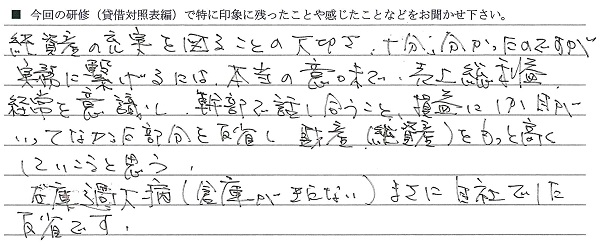 ■ 今回の研修（貸借対照表編）で特に印象に残ったことや感じたことなどをお聞かせ下さい。
総資産の充実を図ることの大切さ、十分分かったのですが
実務に繋げるには、本当の意味で、売上総利益
経営を意識し、幹部で話し合うこと、損益にしか目が
いってなかった部分を反省し 財産（総資産）をもっと高く
していこうと思う。
在庫過大病（倉庫が足らない）まさに自社でした
反省です。